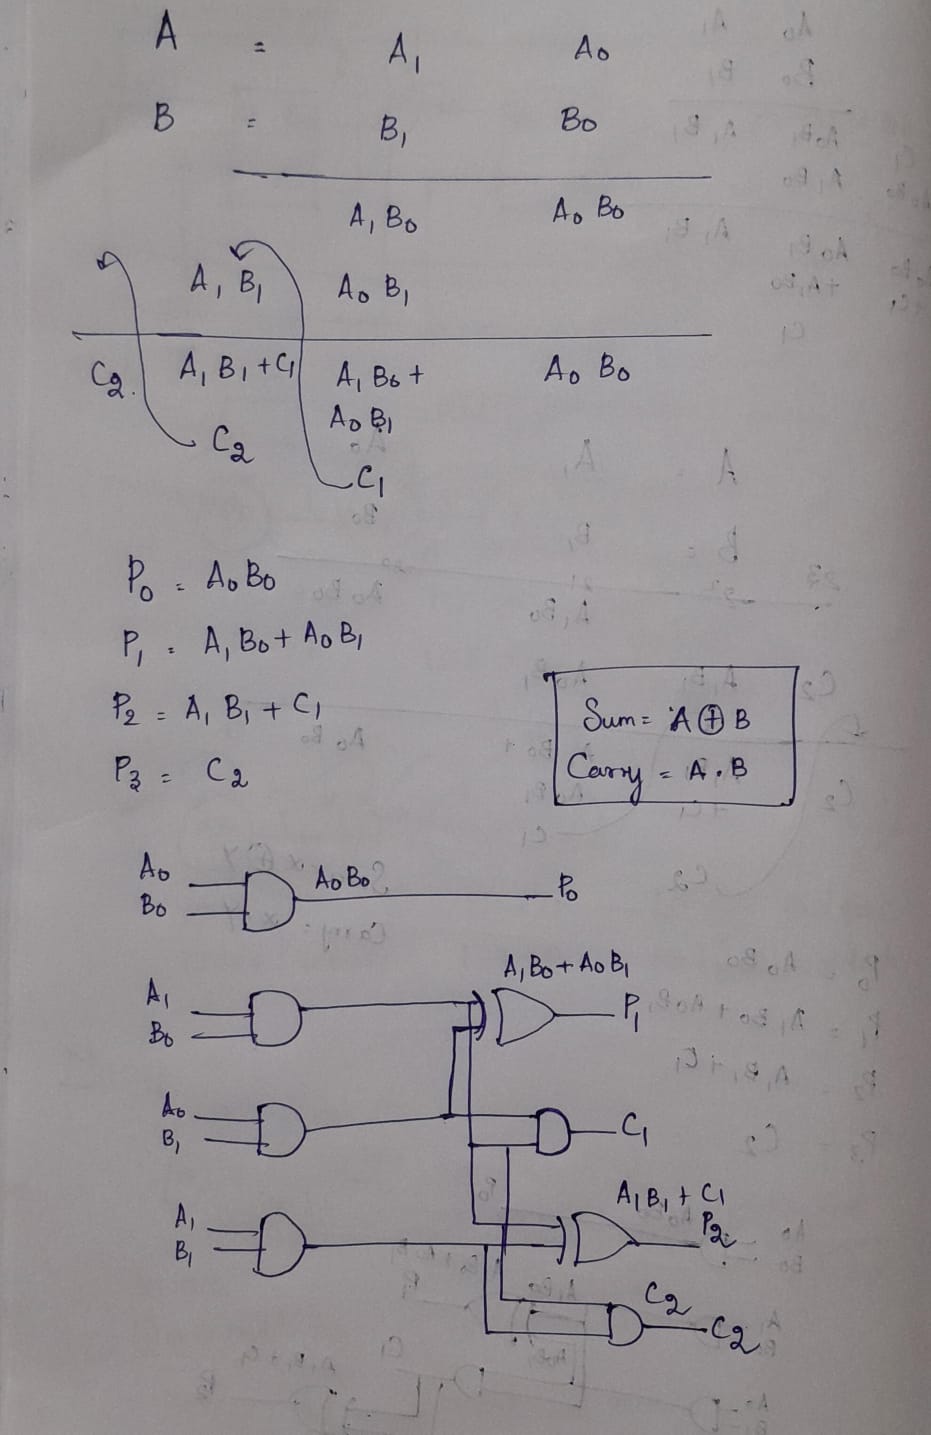 A = A₁ A₀
B = B₁ B₀
A₁ B₀ A₀ B₀
A₁ B₁ A₀ B₁
C₂. A₁ B₁ + C₁ A₁ B₀ + A₀ B₀
A₀ B₁
C₂
C₁
P₀ = A₀ B₀
P₁ = A₁ B₀ + A₀ B₁
P₂ = A₁ B₁ + C₁
P₃ = C₂
Sum = A ⊕ B
Carry = A . B
A₀
B₀
A₀ B₀
P₀
A₁
B₀
A₁ B₀ + A₀ B₁
P₁
A₀
B₁
C₁
A₁
B₁
A₁ B₁ + C₁
P₂
C₂
C₂